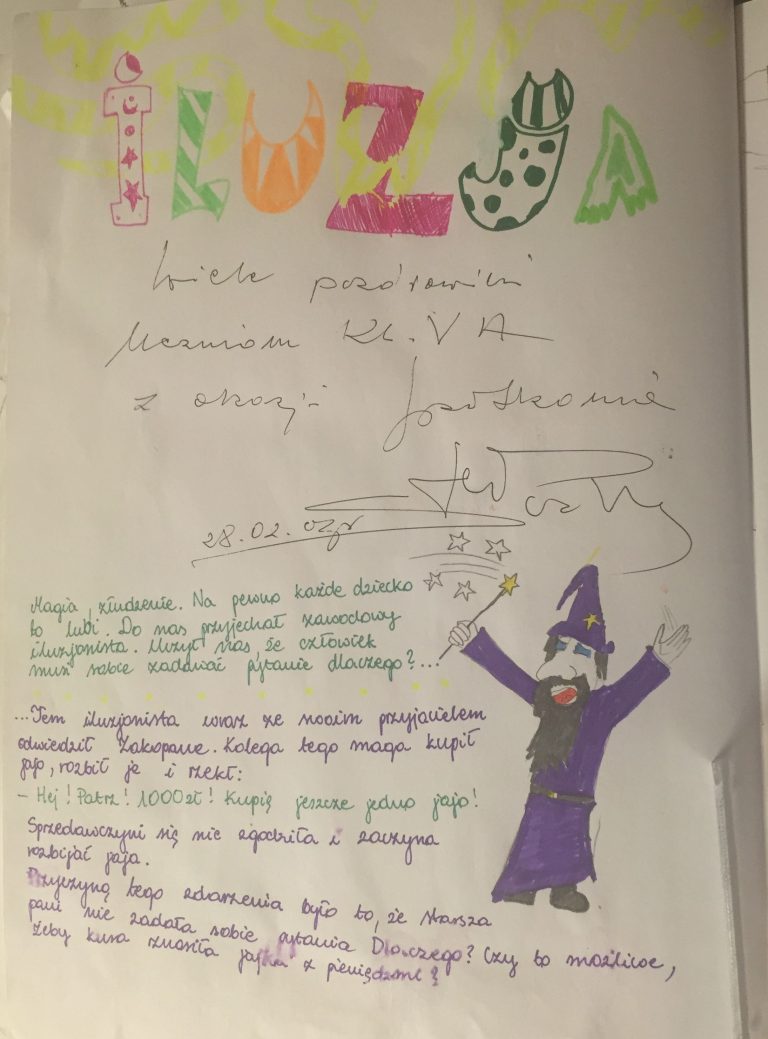 iLUZJA
Wiele pozdrowień
Uczniom Kl. V A
z okazji spotkania
28.02.
Magia, złudzenie. Na pewno każde dziecko
to lubi. Do nas przyjechał zawodowy
iluzjonista. Uczył nas, że człowiek
musi sobie zadawać pytanie dlaczego?...
...Tem iluzjonista wraz ze swoim przyjacielem
odwiedził Zakopane. Kolega tego maga kupił
jajo, rozbił je i rzekł:
- Hej! Patrz! 1000zł! Kupię jeszcze jedno jajo!
Sprzedawczyni się nie zgodziła i zaczyna
rozbijać jaja.
Przyczyną tego zdarzenia było to, że starsza
pani nie zadała sobie pytania Dlaczego? Czy to możliwe,
żeby kura znosiła jajka z pieniędzmi?